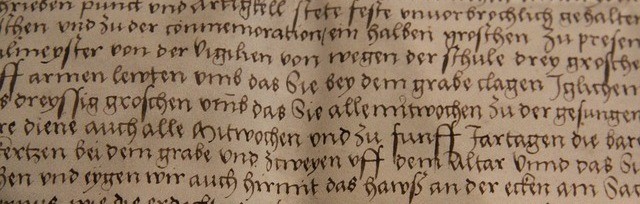 punct und artigkell stete feste unvorbrochlich gehalten
und zu der commemoration ein halben groschen zu presen
almeyster von der vigilien von wegen der schule drey grosche
ff armen lewten umb das Sie bey dem grabe clagen Iglichen
s dreyssig groschen umb das Sie alle mitwochen zu der gesungen
re diene auch alle Mitwochen und zu funff Jartagen die bare
ertzen bei dem grabe und zcweyen uff dem altar Unnd das Si
hen und eygen wir auch hirmit das hawß an der ecken am Sac